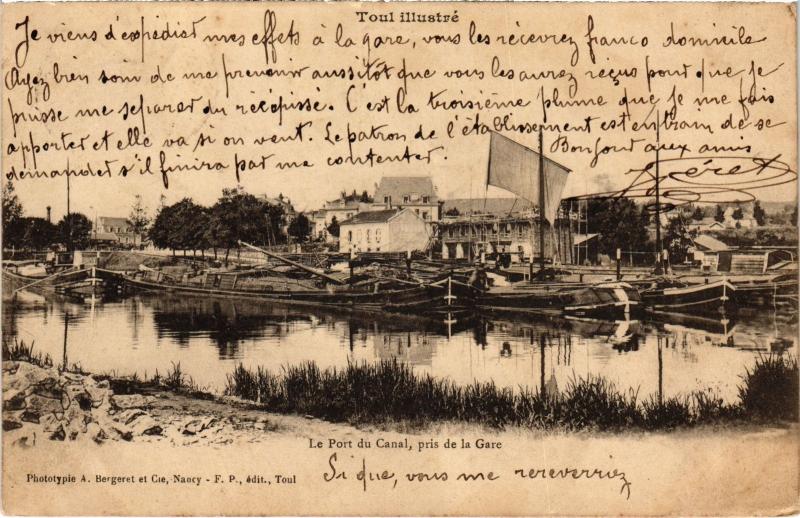 Toul illustré
Je viens d'expédier mes effets à la gare, vous les recevrez franco domicile
Ayez bien soin de me prevenir aussitôt que vous les aurez reçus pour que je
puisse me separer du récépissé. C'est la troisième plume que je me fais
apporter et elle va si on veut. Le patron de l'établissement est en train de se
demander s'il finira par me contenter. Bonjour aux amis
Le Port du Canal, pris de la Gare
Phototypie A. Bergeret et Cie, Nancy - F. P., édit., Toul
Si que, vous me rereverriez